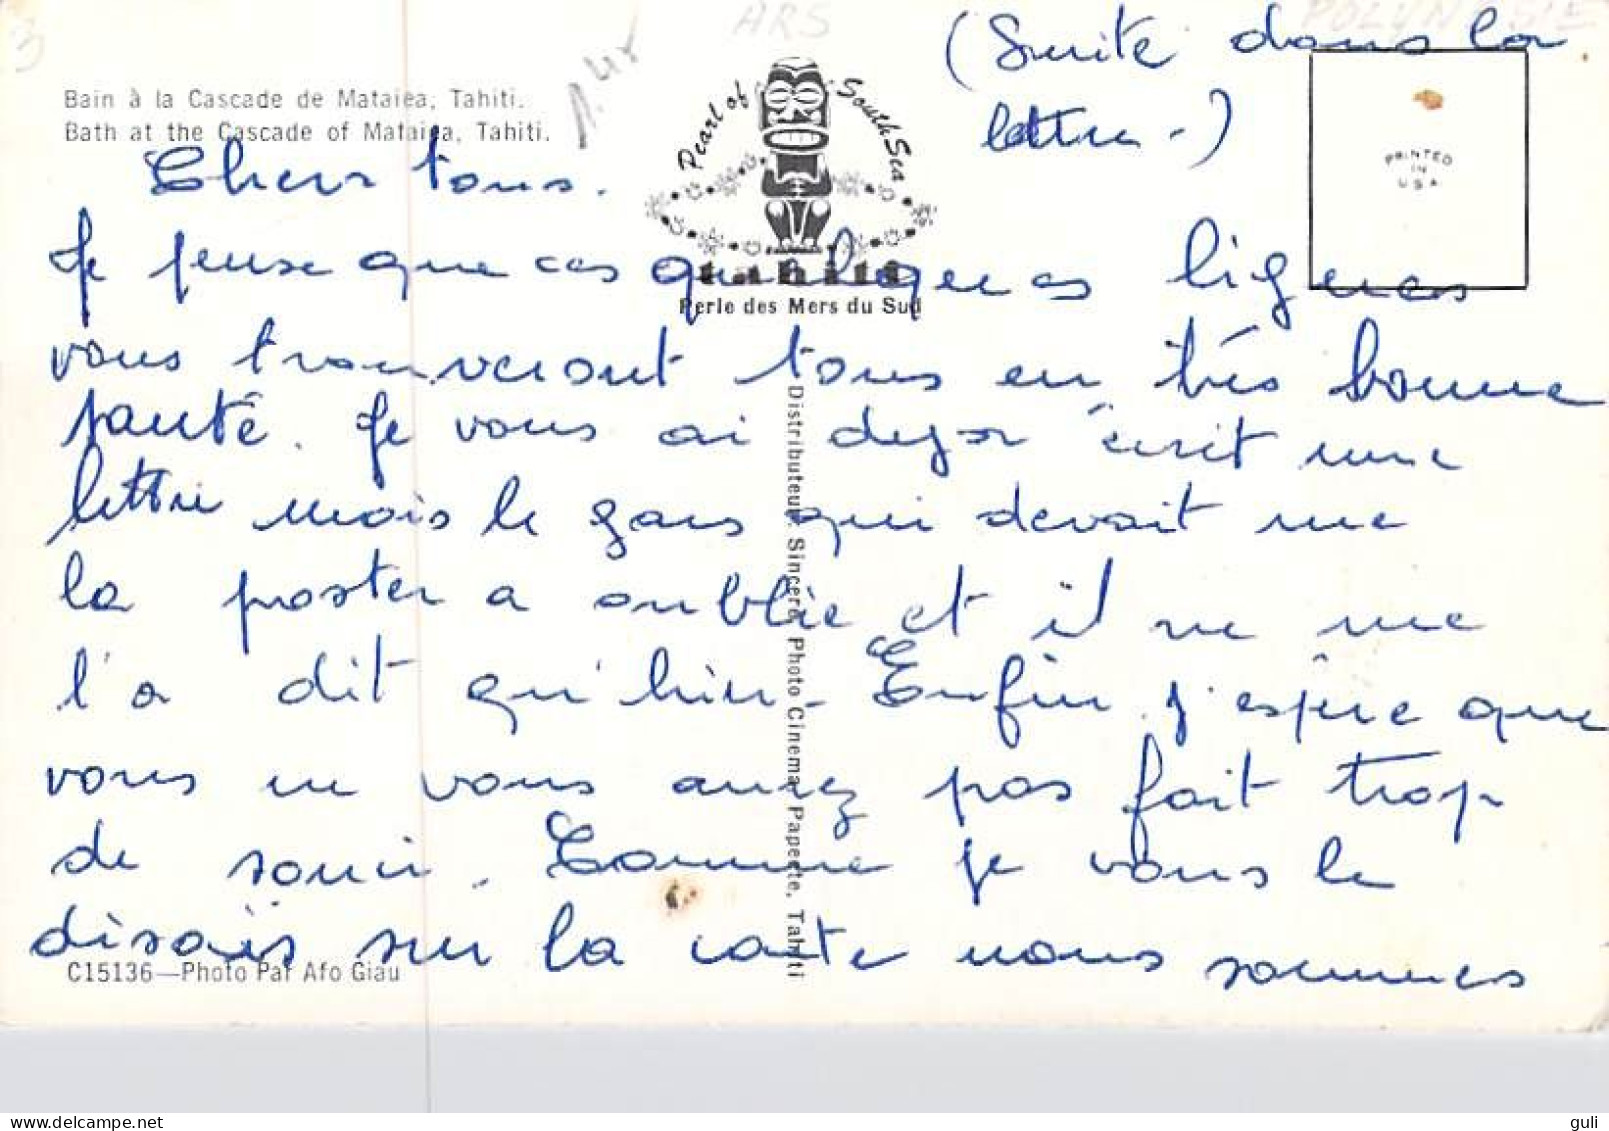 ARS
POLYNESIE
3
(Suite dans la
lettre -)
Bain à la Cascade de Mataiea, Tahiti.
Bath at the Cascade of Mataiea, Tahiti.
Pearl of South Sea
tahiti
Perle des Mers du Sud
PRINTED
IN
U.S.A.
Chers tous.
Je pense que ces quelques lignes
vous trouveront tous en très bonne
santé. Je vous ai deja écrit une
lettre mais le gars qui devait me
la poster a oublié et il ne me
l'a dit qu'hier. Enfin j'espère que
vous ne vous aurez pas fait trop
de souci. Comme je vous le
disais sur la carte nous sommes
Distributeur: Sincere Photo Cinema, Papeete, Tahiti
C15136—Photo Par Afo Giau
guli